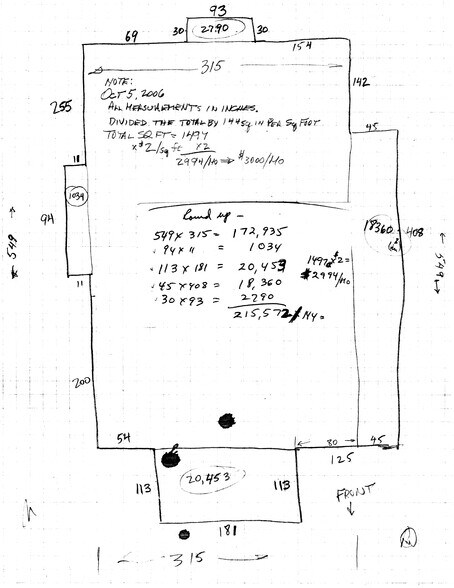 93
30 2790 30
69
154
315
NOTE:
OCT 5, 2006
ALL MEASUREMENTS IN INCHES.
DIVIDED THE TOTAL BY 144 SQ. IN PER SQ FOOT
TOTAL SQ FT = 1497
x $2/sq ft x 2
2994/MO ⇒ $3000/MO
142
255
45
11
1034
94
11
549
Round up -
549 x 315 = 172,935
94 x 11 = 1034
113 x 181 = 20,453
45 x 408 = 18,360
30 x 93 = 2790
215,572 / 144 =
1497 x $2 =
$2994/MO
18360
408
549
200
54
80
45
125
113
20,453
113
181
315
FRONT